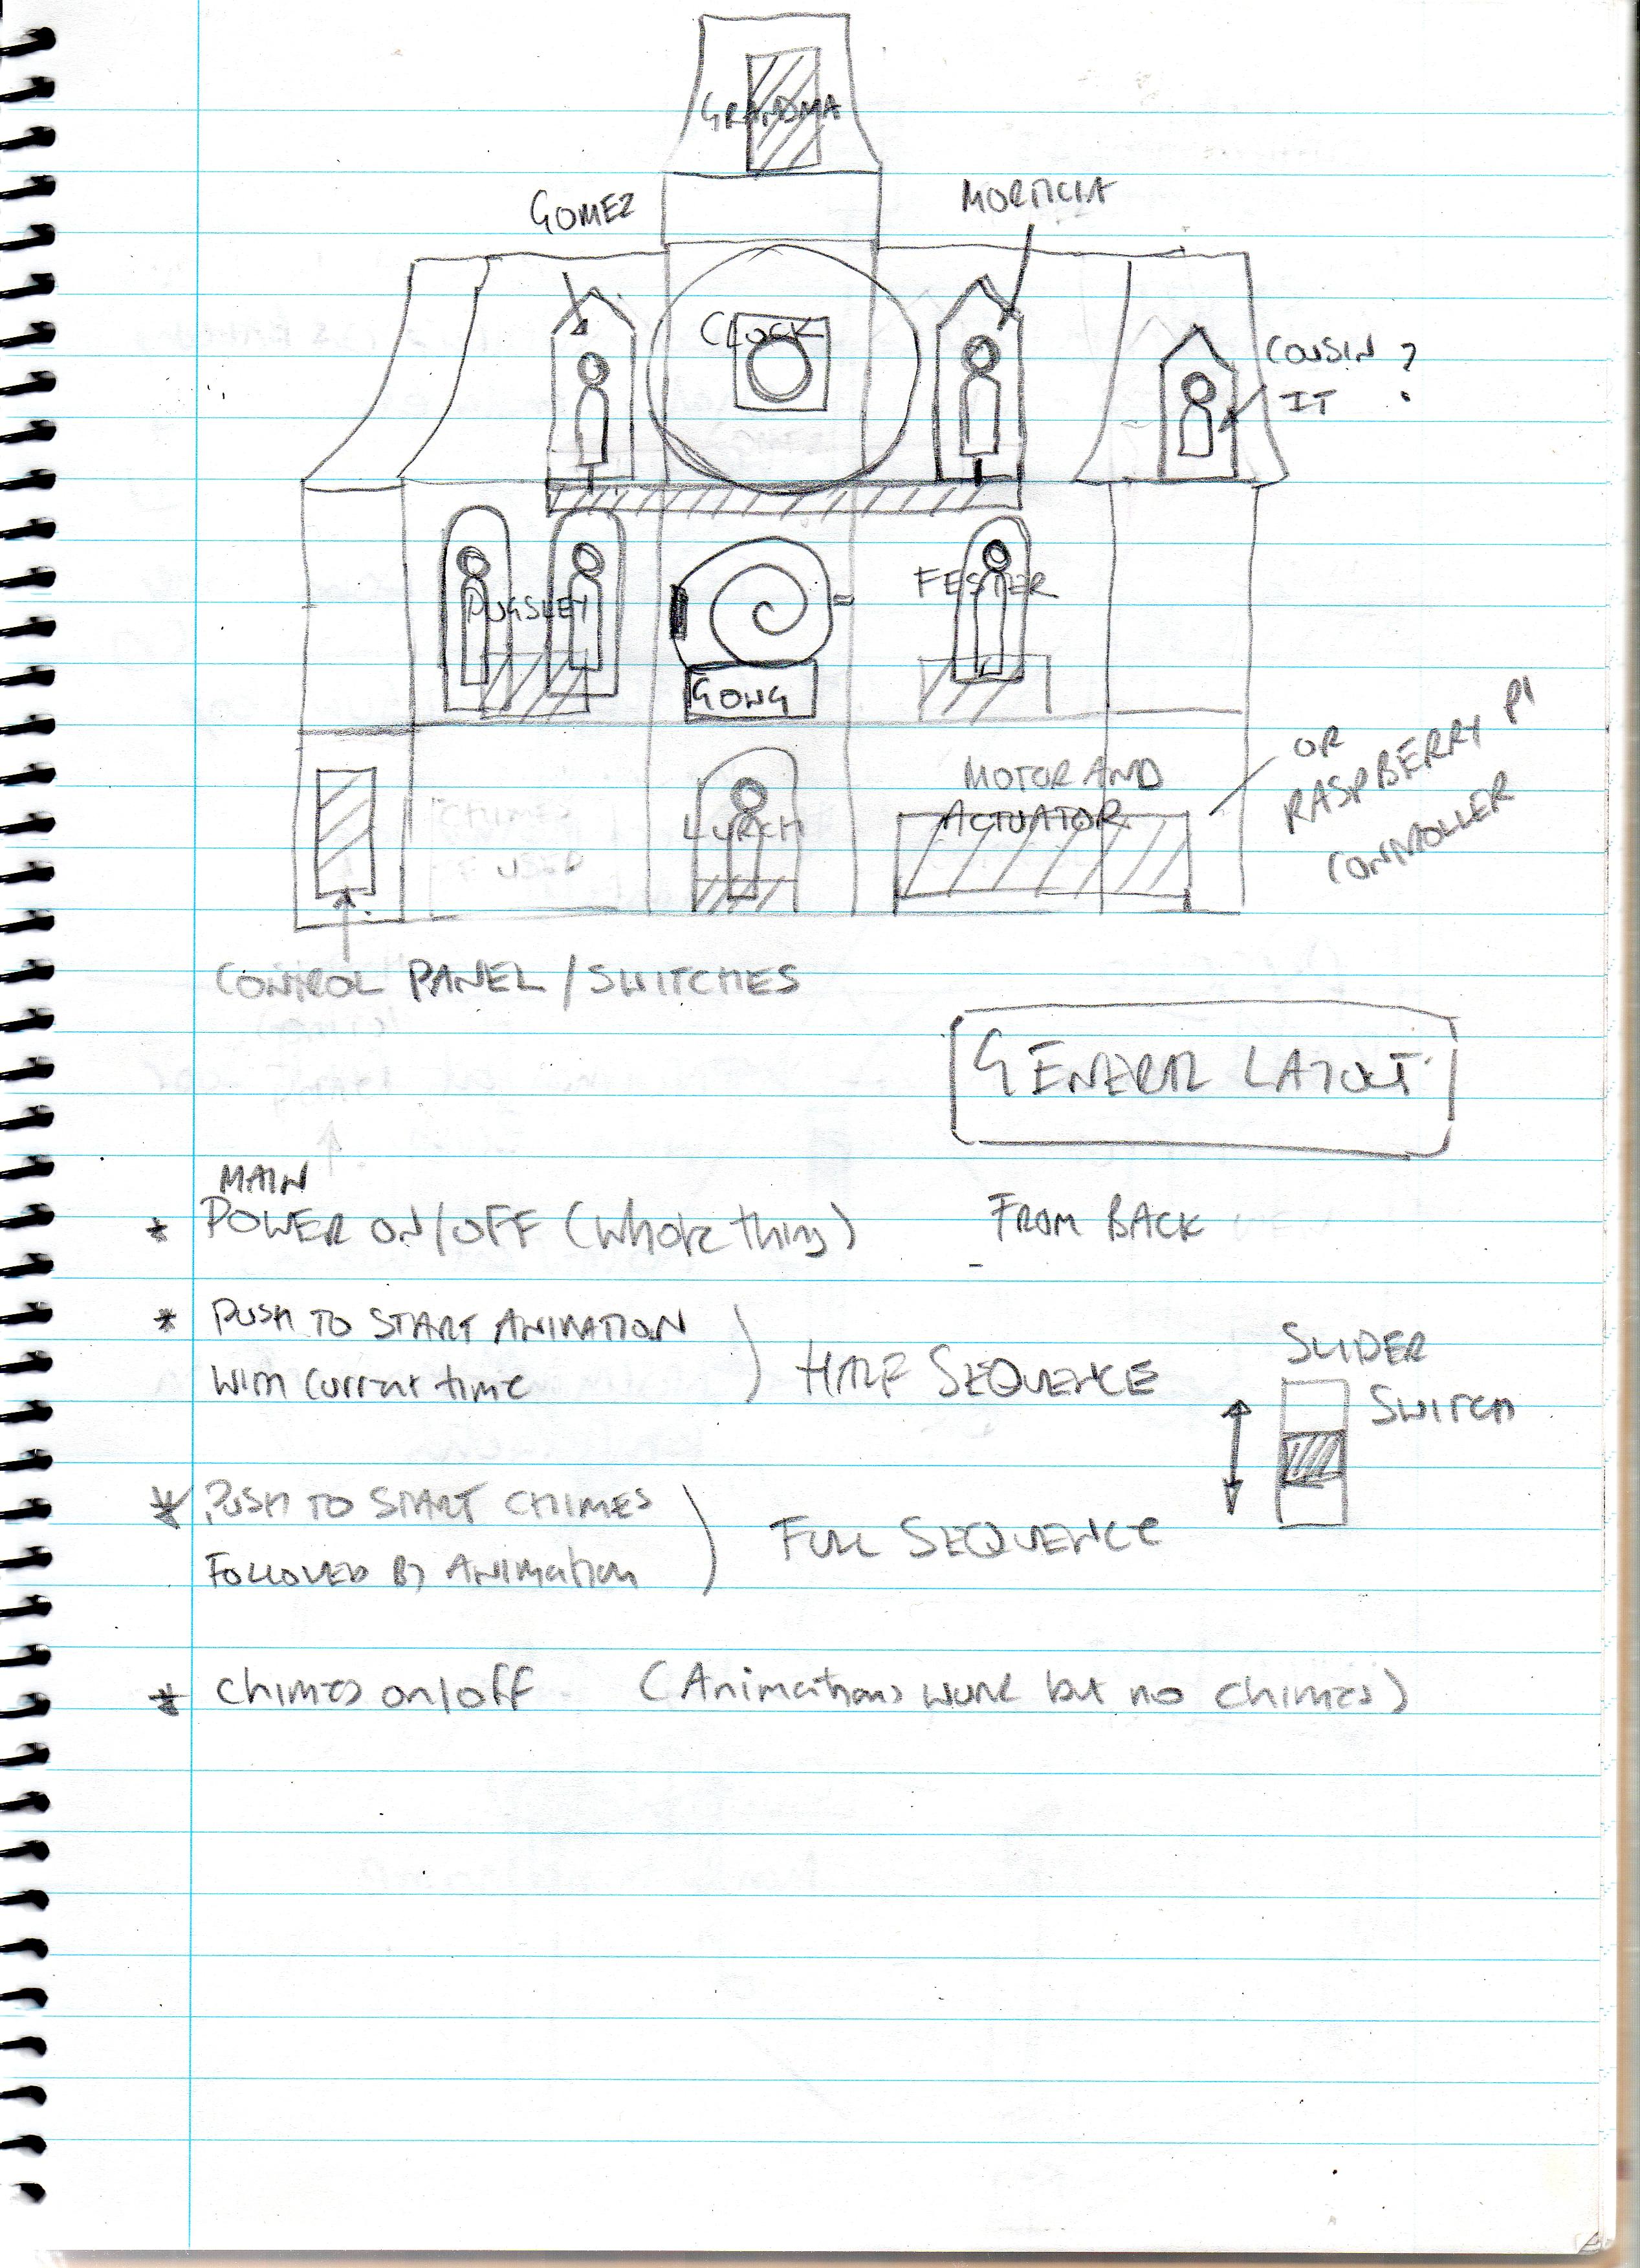 GRANDMA
GOMEZ
MORTICIA
CLOCK
COUSIN ?
IT
PUGSLEY
FESTER
GONG
OR
RASPBERRY PI
CONTROLLER
MOTOR AND
ACTUATOR
LURCH
CHIMES
IF USED
CONTROL PANEL / SWITCHES
GENERAL LAYOUT
MAIN
* POWER ON/OFF (Whole thing)
FROM BACK
* PUSH TO START ANIMATION
With Current time
HALF SEQUENCE
SLIDER
SWITCH
* PUSH TO START CHIMES
FOLLOWED By ANIMation
FULL SEQUENCE
* Chimes on/off (Animations work but no chimes)